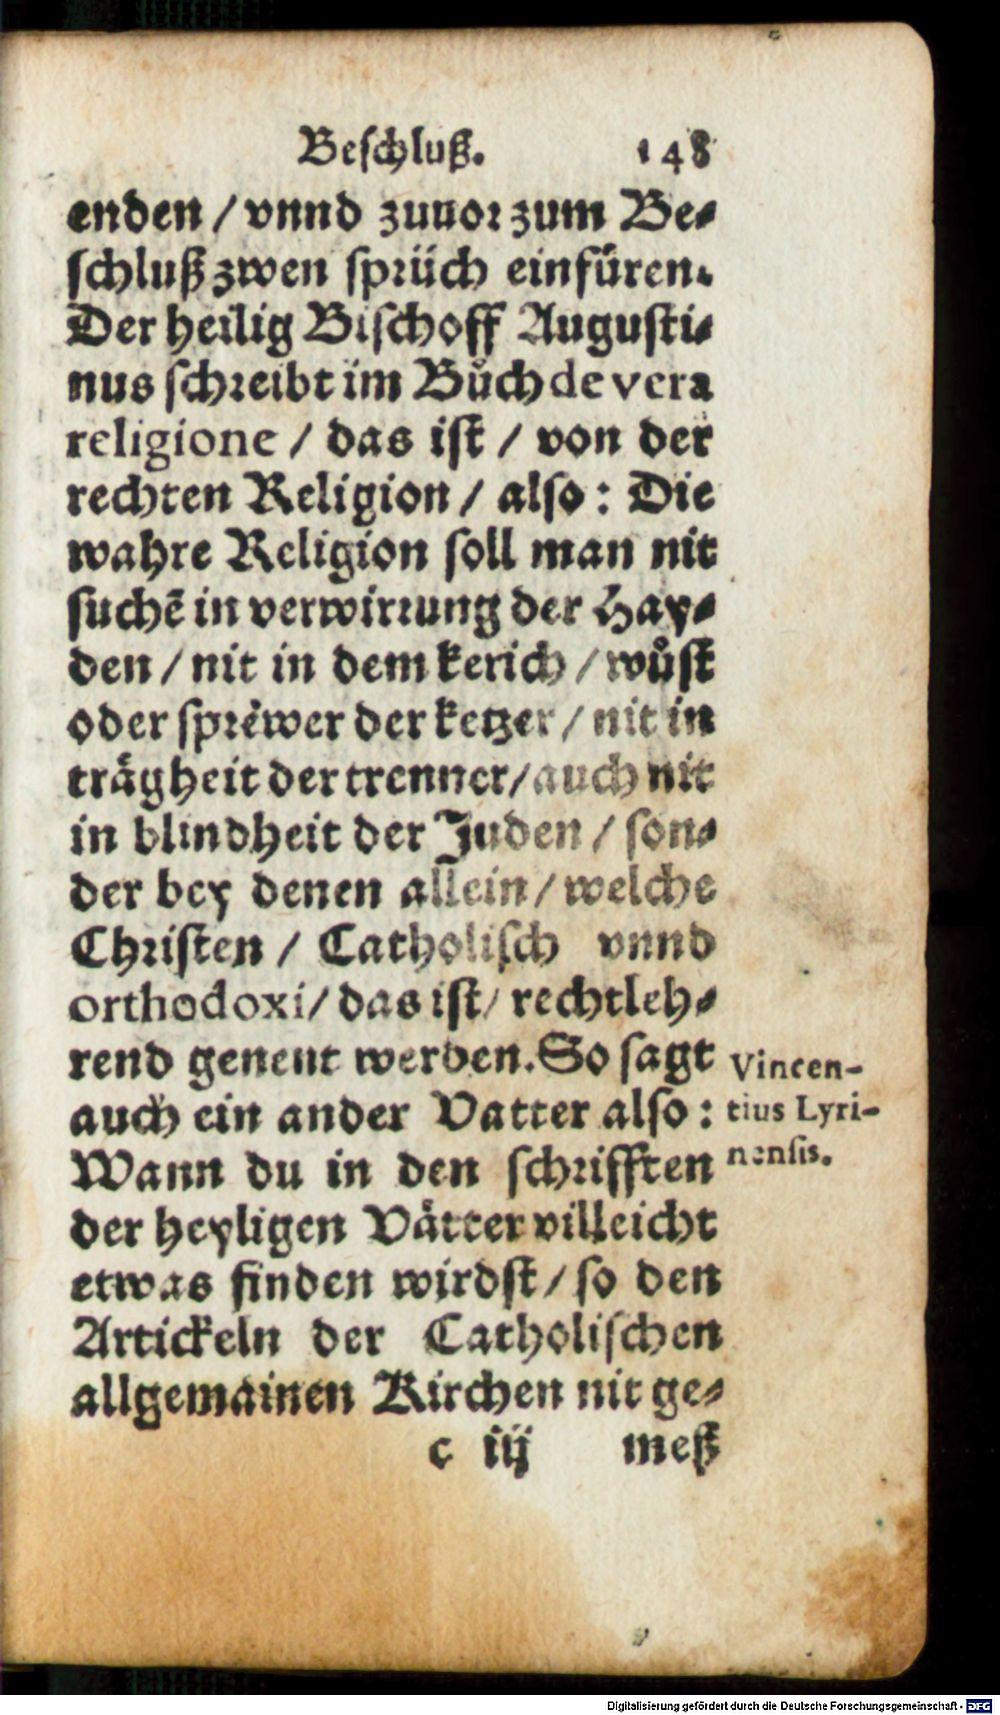 Beschluß. 148
enden / vnnd zuuor zum Be⸗
schluß zwen sprüch einfüren.
Der heilig Bischoff Augusti⸗
nus schreibt im Bůch de vera
religione / das ist / von der
rechten Religion / also: Die
wahre Religion soll man nit
suchē in verwirrung der Hay⸗
den / nit in dem kerich / wůst
oder sprëwer der ketzer / nit in
trägheit der trenner / auch nit
in blindheit der Juden / son⸗
der bey denen allein / welche
Christen / Catholisch vnnd
orthodoxi / das ist / rechtleh⸗
rend genent werden. So sagt
auch ein ander Vatter also:
Vincen-
tius Lyri-
nensis.
Wann du in den schrifften
der heyligen Vätter villeicht
etwas finden wirdst / so den
Artickeln der Catholischen
allgemainen Kirchen nit ge⸗
c iij meß
Digitalisierung gefördert durch die Deutsche Forschungsgemeinschaft - DFG